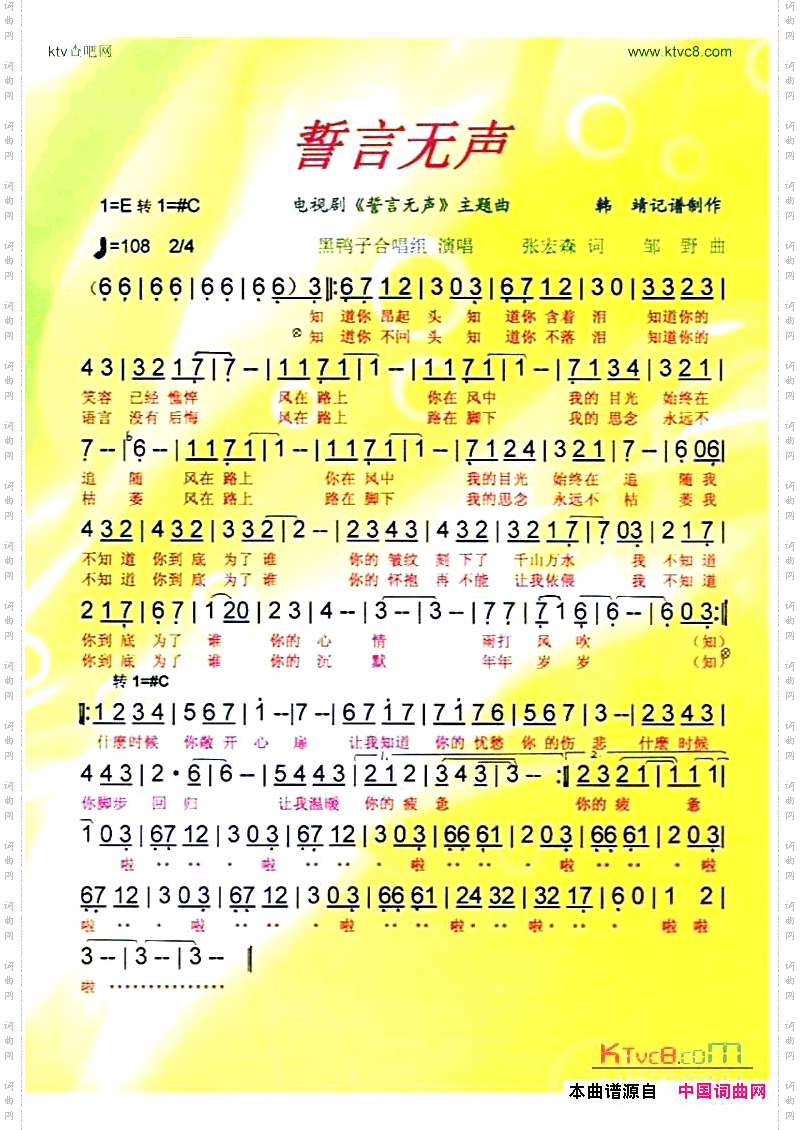 ktv查吧网 www.ktvc8.com
誓言无声
1=E 转 1=#C 电视剧《誓言无声》主题曲 韩 靖记谱制作
♩=108 2/4 黑鸭子合唱组 演唱 张宏森 词 邹 野 曲
(66|66|66|66|66)3|:6712|303|6712|30|3323|
知 道你 昂起 头 知 道你 含着 泪 知道你的
知 道你 不问 头 知 道你 不落 泪 知道你的
43|3217|7--|1171|1--|1171|1--|7134|321|
笑容 已经 憔悴 风在路上 你在风中 我的目光 始终在
语言 没有 后悔 风在路上 路在脚下 我的思念 永远不
7--|b6--|1171|1--|1171|1--|7124|321|7--|606|
追 随 风在路上 你在风中 我的目光 始终在 追 随我
枯 萎 风在路上 路在脚下 我的思念 永远不 枯 萎我
432|432|332|2--|2343|432|3217|703|217|
不知道 你到底 为了谁 你的 皱纹 刻下了 千山万水 我 不知道
不知道 你到底 为了谁 你的 怀抱 再不能 让我依偎 我 不知道
217|67|120|23|4--|3--|3--|77|716|6--|603:|
你到底 为了 谁 你的 心 情 雨打 风 吹 (知)
你到底 为了 谁 你的 沉 默 年年 岁 岁 (知)
转 1=#C
|:1234|567|1--|7--|6717|7176|567|3--|2343|
什麽时候 你敞 开 心 扉 让我知道 你的 忧愁 你 的伤 悲 什麽 时候
1. 2.
443|2·6|6--|5443|212|343|3--:|2321|111|
你脚步 回 归 让我温暖 你的 疲 惫 你的 疲 惫
103|6712|303|6712|303|6661|203|6661|203|
啦 ·· ·· · 啦 ·· ·· · 啦 ·· ·· · 啦 ·· ·· · 啦
6712|303|6712|303|6661|2432|3217|60|1 2|
啦 ·· · 啦 ·· ·· · 啦 ·· ·· 啦· ·· 啦· ·· · 啦 啦
3--|3--|3--|
啦 ···············
KTvc8.com
本曲谱源自 中国词曲网
词曲网